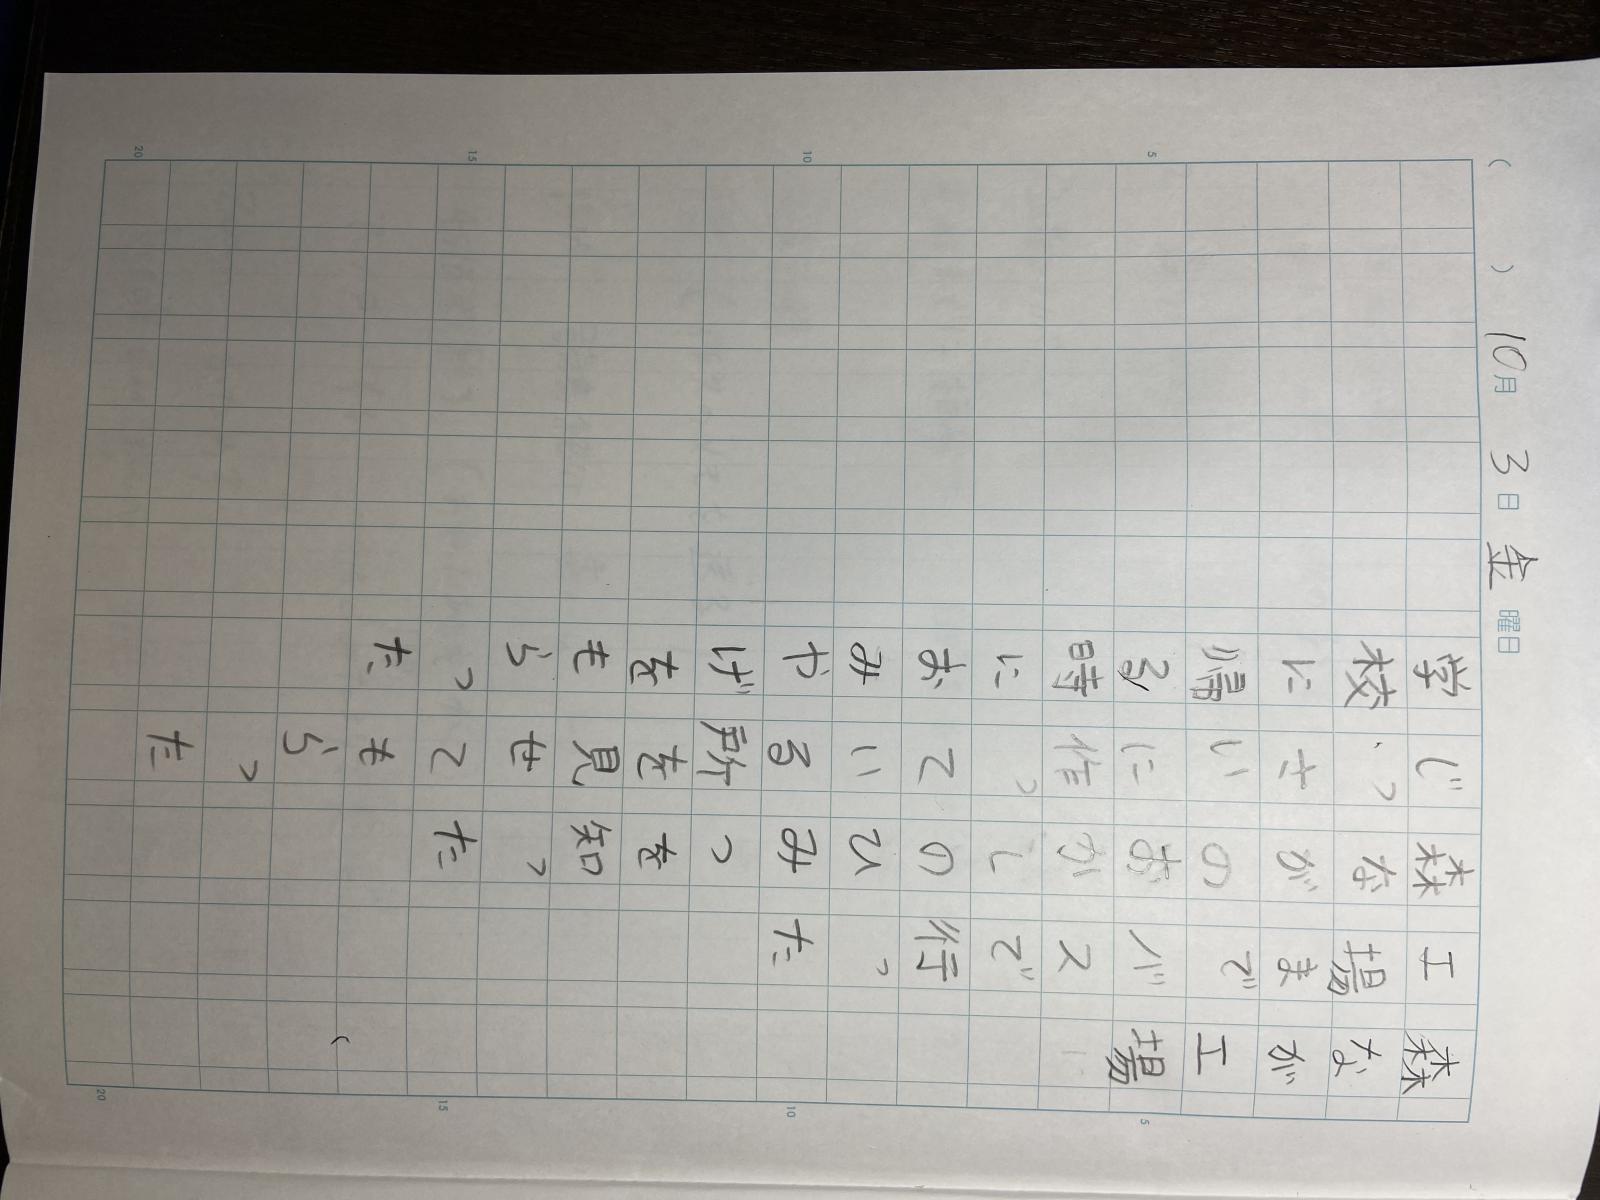 (　)10月3日金曜日
5 10 15 20
森なが工場
工場までバスで行った
森ながのおかしのひみつを知った
じっさいに作っている所を見せてもらった
学校に帰る時におみやげをもらった
5 10 15 20